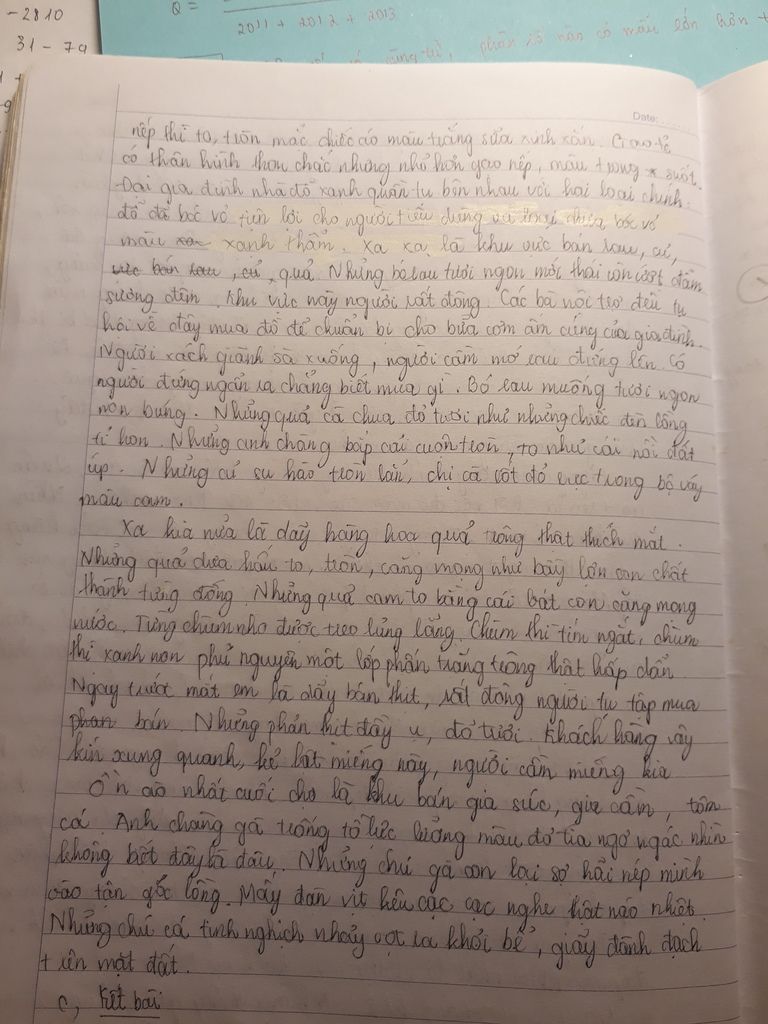 -2810
31 - 79
Q =
2011 + 2012 + 2013
Date:
nếp thì to, tròn mặc chiếc áo màu trắng sữa xinh xắn. Gạo tẻ
có thân hình thon chắc nhưng nhỏ hơn gạo nếp, màu trong suốt.
Đại gia đình nhà đỗ xanh quần tụ bên nhau với hai loại chính:
đỗ đã bóc vỏ tiện lợi cho người tiêu dùng và loại chưa bóc vỏ
màu xanh thẫm. Xa xa là khu vực bán rau, củ,
, củ, quả. Những bó rau tươi ngon mới thái còn ướt đẫm
sương đêm. Khu vực này người rất đông. Các bà nội trợ đều tụ
hội về đây mua đồ để chuẩn bị cho bữa cơm ấm cúng của gia đình.
Người xách giành sà xuống, người cầm mớ rau đứng lên. Có
người đứng ngẩn ra chẳng biết mua gì. Bó rau muống tươi ngon
non búng. Những quả cà chua đỏ tươi như những chiếc đèn lồng
tí hon. Những anh chàng bắp cải cuộn tròn, to như cái nồi đất
úp. Những củ su hào tròn lẳn, chị cà rốt đỏ rực trong bộ váy
màu cam.
Xa kia nữa là dãy hàng hoa quả trông thật thích mắt.
Những quả dưa hấu to, tròn, căng mọng như bầy lợn con chất
thành từng đống. Những quả cam to bằng cái bát con căng mọng
nước. Từng chùm nho được treo lủng lẳng. Chùm thì tím ngắt, chùm
thì xanh non phủ nguyên một lớp phấn trắng trông thật hấp dẫn.
Ngay trước mắt em là dãy bán thịt, rất đông người tụ tập mua
bán. Những phản thịt đầy ụ, đỏ tươi. Khách hàng vây
kín xung quanh, kẻ lật miếng này, người cầm miếng kia
Ồn ào nhất cuối chợ là khu bán gia súc, gia cầm, tôm
cá. Anh chàng gà trống tồ lực lưỡng màu đỏ tía ngơ ngác nhìn
không biết đây là đâu. Những chú gà con lại sợ hãi nép mình
vào tận góc lồng. Mấy đàn vịt kêu cạc cạc nghe thật náo nhiệt.
Những chú cá tinh nghịch nhảy vọt ra khỏi bể, giãy đành đạch
trên mặt đất.
c, Kết bài